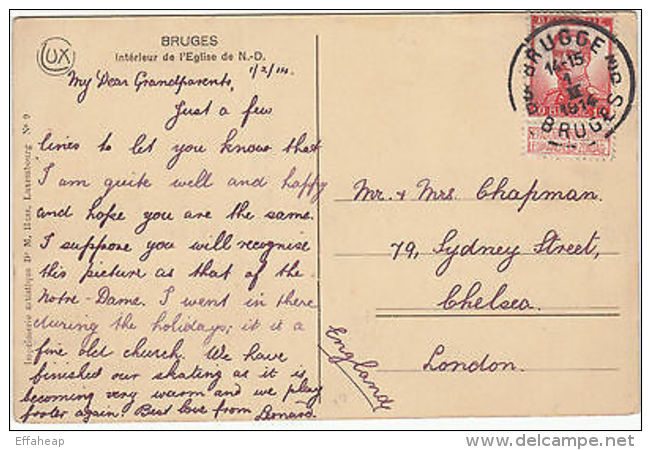 UX
BRUGES
Intérieur de l'Eglise de N.-D.
1/2/14.
My Dear Grandparents,
Just a few
lines to let you know that
I am quite well and happy
and hope you are the same.
I suppose you will recognise
this picture as that of the
Notre-Dame. I went in there
during the holidays; it is a
fine old church. We have
finished our skating as it is
becoming very warm and we play
footer again. Best love from Bernard.
Mr. & Mrs Chapman.
79, Sydney Street,
Chelsea.
London.
England
BRUGGE
14-15
1
II
1914
BRUGES
BELGIE
Imprimerie artistique Dr M. Huss, Luxembourg No 9
Effaheap
http://www.delcampe.net